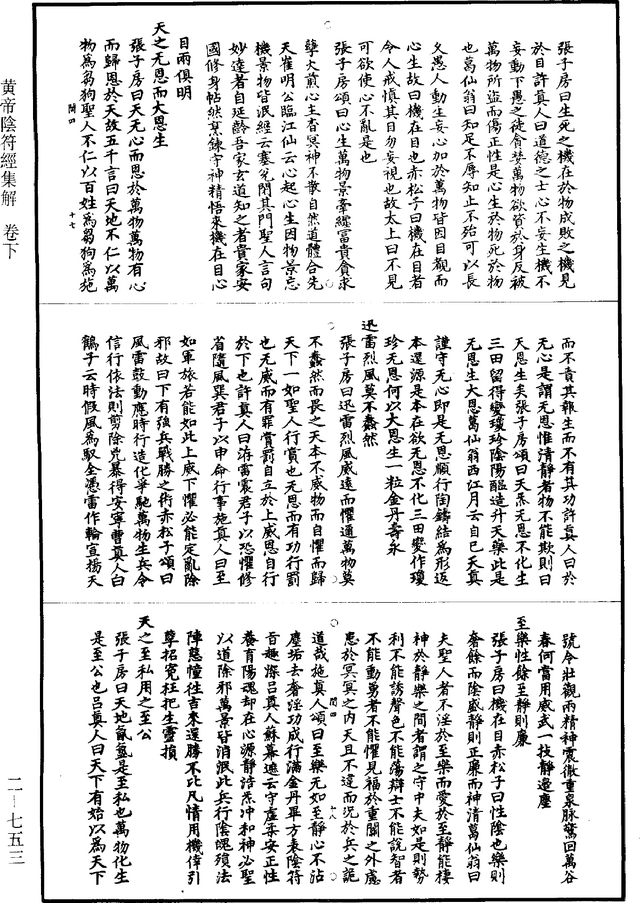 黃帝陰符經集解 卷下
二—七五三
張子房曰生死之機在於物成敗之機見
於目許真人曰道德之士心不妄生機不
妄動下愚之徒貪婪萬物欲資於身反被
萬物所盜而傷正性是心生於物死於物
也葛仙翁曰知足不辱知止不殆可以長
久愚人動生妄心加於萬物皆因目覩而
心生故曰機在目也赤松子曰機在目者
令人戒慎其目勿妄視也故太上曰不見
可欲使心不亂是也
張子房頌曰心生萬物景牽纏富貴貪求
孽火煎心主杳冥神不散自然道體合先
天崔明公臨江仙云心起心生因物景忘
機景物皆泯經云塞兌閉其門聖人言句
妙達者自延齡吾家玄道知之者貴家安
國修身帖然烹鍊守神精悟來機在目心
目兩俱明
天之无恩而大恩生
張子房曰天无心而恩於萬物萬物有心
而歸恩於天故五千言曰天地不仁以萬
物為芻狗聖人不仁以百姓為芻狗為施
閏四 十七
而不責其報生而不有其功許真人曰於
无心是謂无恩惟清靜者物不能欺則曰
天恩生矣張子房頌曰天炁无恩不化生
三田留得變瓊珍陰陽醞造升天樂此是
无恩生大恩葛仙翁西江月云自巳天真
謹守无心即是无恩順行陶鑄結為形返
本還源是本在欲无恩不化三田變作瓊
珍无恩何以大恩生一粒金丹壽永
迅雷烈風莫不蠢然
張子房曰迅雷烈風威遠而懼邇萬物莫
不蠢然而畏之天本不威物而自懼而歸
天下一如聖人行賞也无恩而有功行罰
也无威而有罪賞罰自立於上威恩自行
於下也許真人曰洊雷震君子以恐懼修
省隨風巽君子以申命行事施真人曰至
如軍旅若能如此上威下懼必能定亂除
邪故曰下有強兵戰勝之術赤松子頌曰
風雷鼓動應時行造化爭馳萬物生兵令
信行依法則剪除兇暴得安寧曹真人白
鶴子云時假風為馭全憑雷作輪宣揚天
號令壯觀雨精神震徹重泉脉驚回萬谷
春何當用威武一技靜邊塵
至樂性餘至靜則廉
張子房曰機在目赤松子曰性陰也樂則
奢餘而陰盛靜則正廉而神清葛仙翁曰
夫聖人者不淫於至樂而愛於至靜能棲
神於靜樂之間者謂之守中夫如是則勢
利不能誘聲色不能蕩辯士不能說智者
不能動勇者不能懼見福於重關之外慮
患於冥冥之內天且不違而況於兵之詭
道哉施真人頌曰至樂无如至靜心不沾
塵垢去奢淫功成行滿金丹畢方表陰符
旨趣深呂真人蘇幕遮云守虛柔安正性
養育陽魂却在心源靜浩炁沖和神必聖
以道除邪萬景皆消泯此兵行陰魄殞法
陣慈幢往吉來還勝不比凡情用機倖引
孽招冤枉把生靈損
天之至私用之至公
張子房曰天地氤氳是至私也萬物化生
是至公也呂真人曰天下有始以為天下
閏四 十八